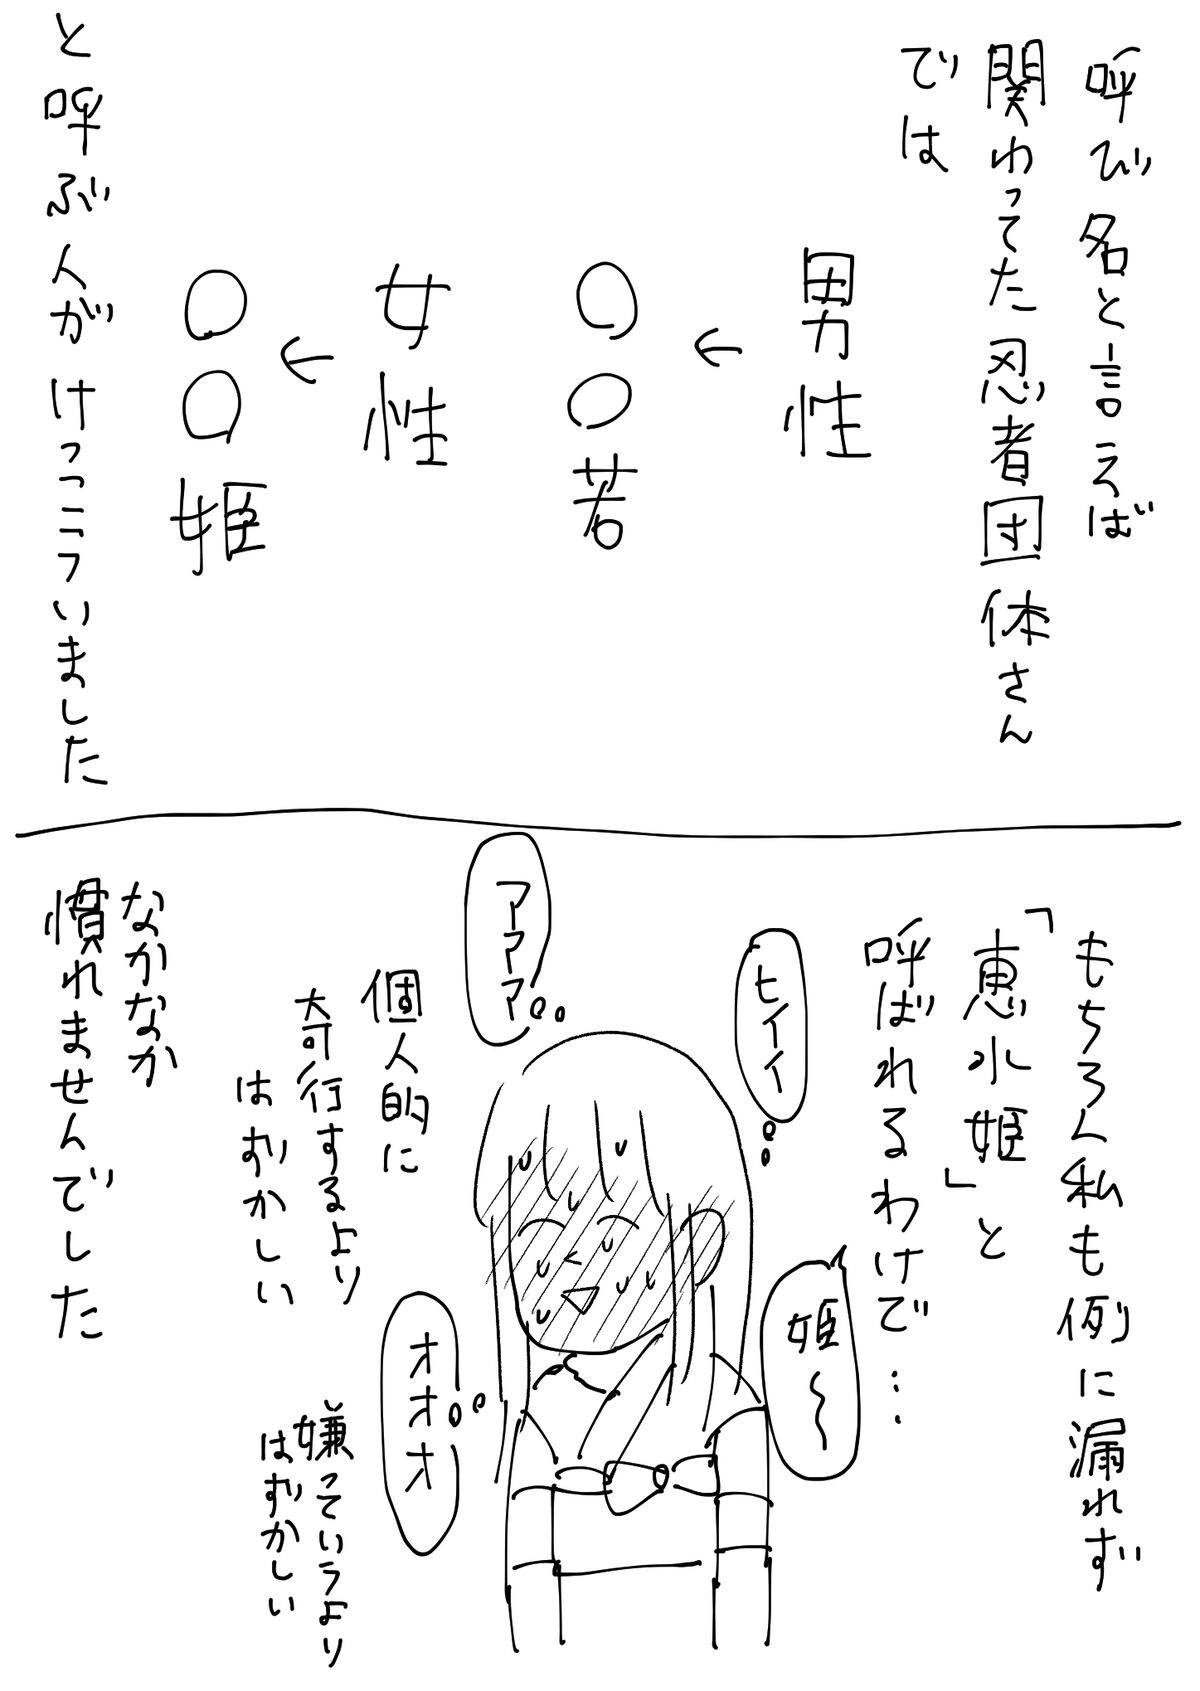 呼び名と言えば
関わってた忍者団体さん
では
男性
↓
〇〇若
女性
↓
〇〇姫
と呼ぶ人がけっこういました
もちろん私も例に漏れず
「恵水姫」と
呼ばれるわけで…
姫〜
ヒイイ
アアア
オオオ
個人的に
奇行するより
はずかしい
嫌っていうより
はずかしい
なかなか
慣れませんでした